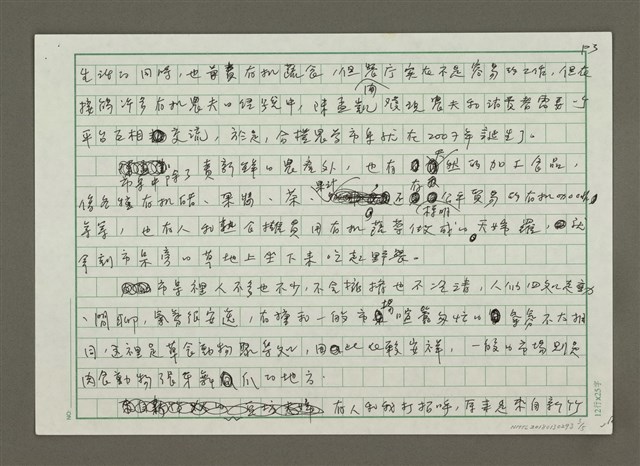 P3
生活的同時,也當賣有机蔬食,但餐厅實在不是容易的工作,但在
接觸許多有机農夫的经驗中,陳孟凱發現農夫和消費者需要一个
平台互相交流,於是,合樸農学市集就在2007年誕生了。
市集中除了賣新鮮的農產外,也有天然的加工食品,
像各種有机醋、果醬、茶、果汁 还有公平貿易的有机咖啡
等等,也有人和熱合推員用有机蔬菜做成的天婦羅,
手刻市集旁的草地上坐下來吃起野餐。
市集裡人不多也不少,不会擁擠也不冷清,人們四処走動
、閒聊,氣氛很安逸,在擁和一般市場喧囂匆忙的氣氛不太相
同,這裡是草食動物聚集処,用比较安祥,一般的市場則是
肉食動物張牙舞爪的地方。
有人和我打招呼,原來是來自新竹
12行×25字